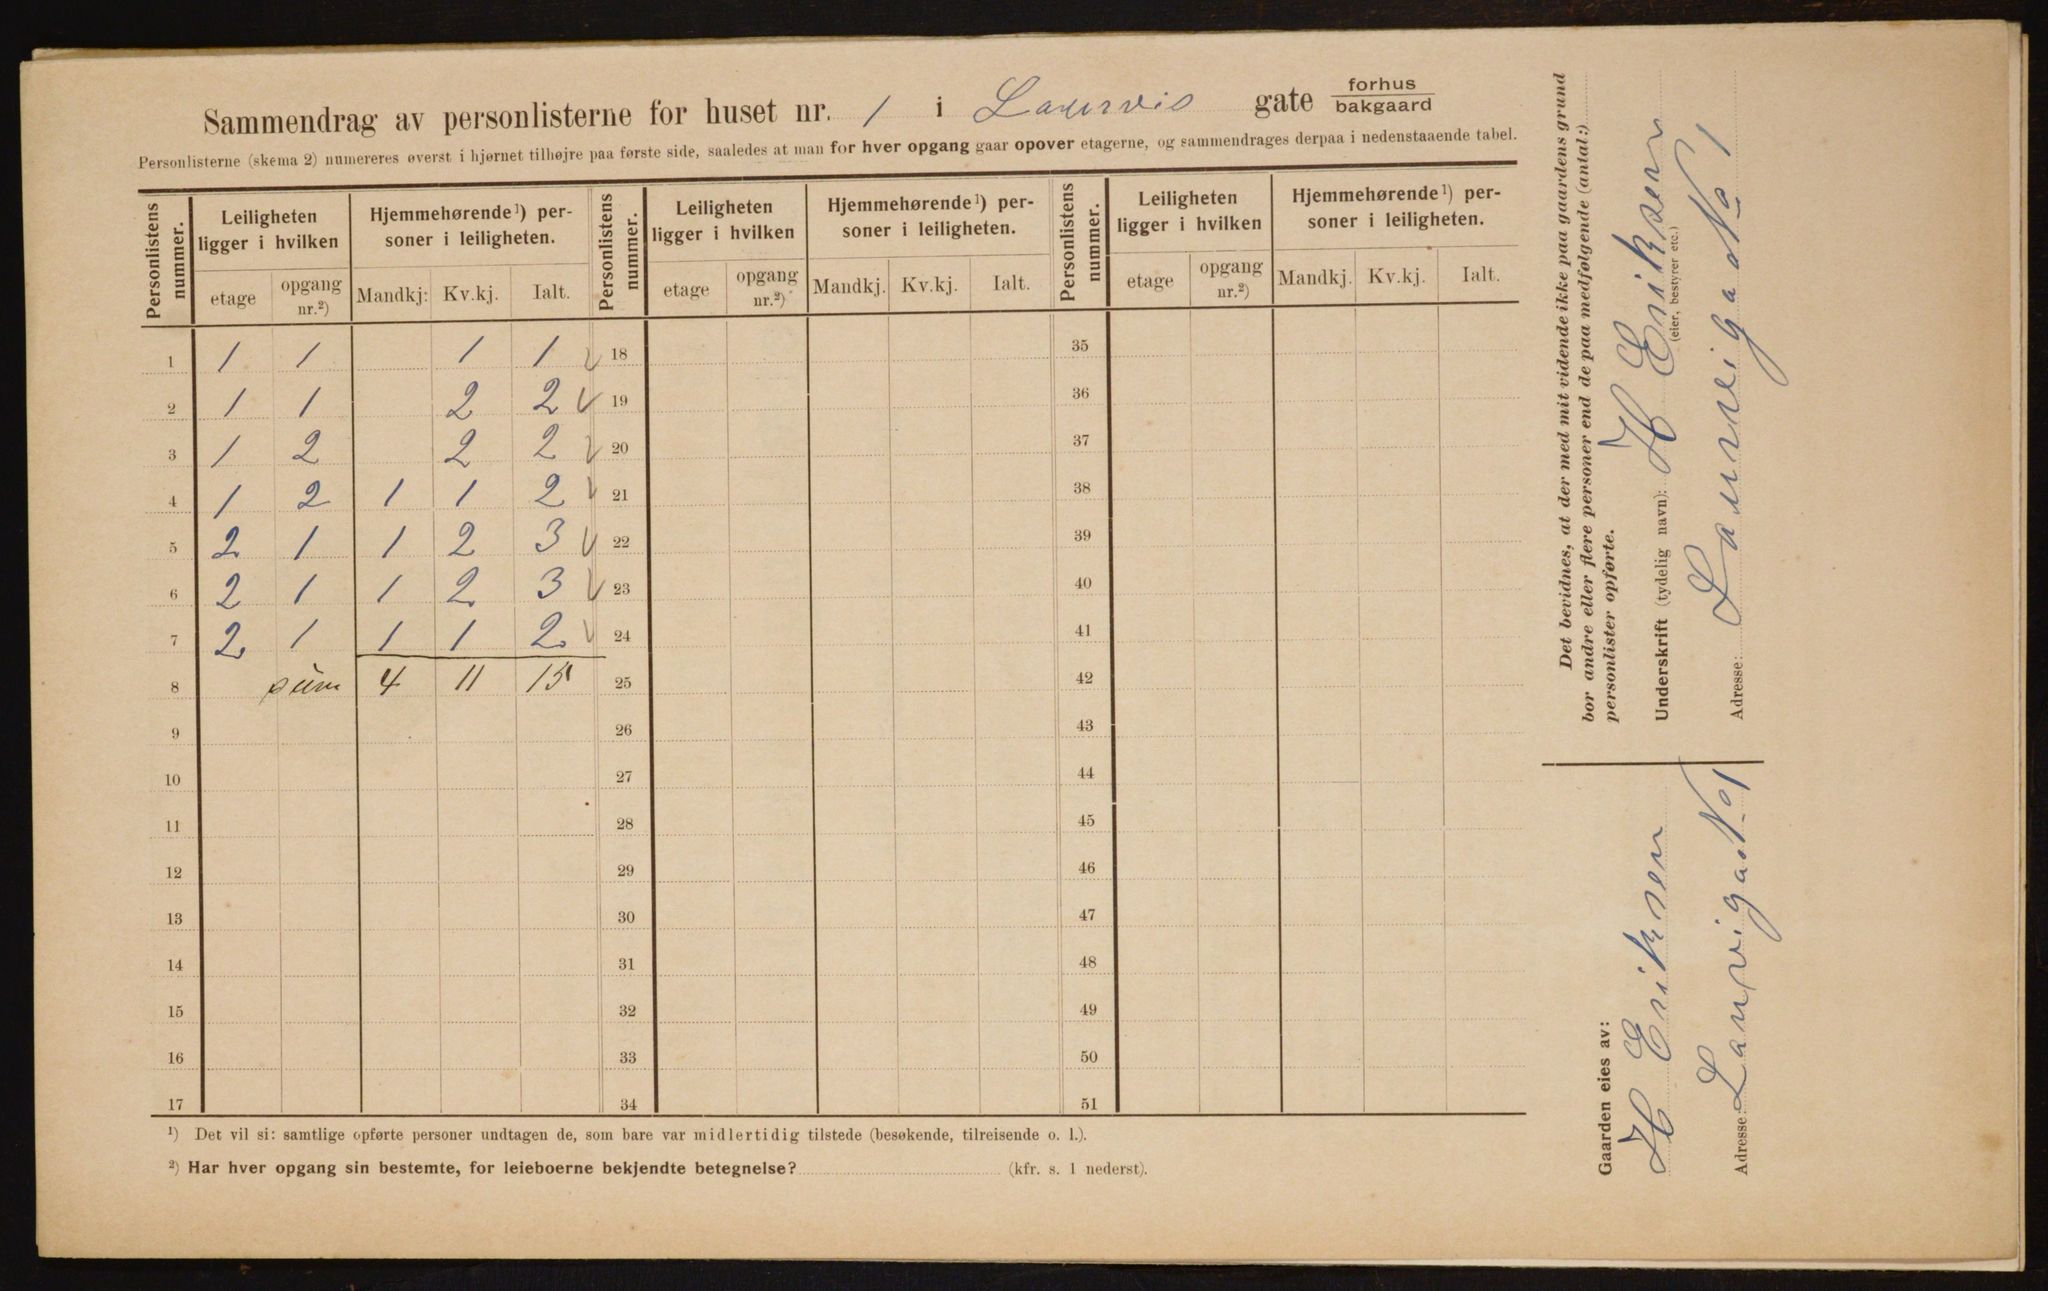 Sammendrag av personlisterne for huset nr. 1 i Laurvis gate forhus bakgaard
Personlisterne (skema 2) numereres øverst i hjørnet tilhøjre paa første side, saaledes at man for hver opgang gaar opover etagerne, og sammendrages derpaa i nedenstaaende tabel.
Personlistens nummer. Leiligheten ligger i hvilken Hjemmehørende¹) personer i leiligheten. Personlistens nummer. Leiligheten ligger i hvilken Hjemmehørende¹) personer i leiligheten. Personlistens nummer. Leiligheten ligger i hvilken Hjemmehørende¹) personer i leiligheten.
etage opgang nr.²) Mandkj: Kv.kj. Ialt. etage opgang nr.²) Mandkj. Kv.kj. Ialt. etage opgang nr.²) Mandkj. Kv.kj. Ialt.
1 1 1 1 1 18 35
2 1 1 2 2 19 36
3 1 2 2 2 20 37
4 1 2 1 1 2 21 38
5 2 1 1 2 3 22 39
6 2 1 1 2 3 23 40
7 2 1 1 1 2 24 41
8 sum 4 11 15 25 42
9 26 43
10 27 44
11 28 45
12 29 46
13 30 47
14 31 48
15 32 49
16 33 50
17 34 51
¹) Det vil si: samtlige opførte personer undtagen de, som bare var midlertidig tilstede (besøkende, tilreisende o. l.).
²) Har hver opgang sin bestemte, for leieboerne bekjendte betegnelse? (kfr. s. 1 nederst).
Det bevidnes, at der med mit vidende ikke paa gaardens grund
bor andre eller flere personer end de paa medfølgende (antal:)
personlister opførte.
Underskrift (tydelig navn): H Eriksen
(eier, bestyrer etc.)
Adresse: Laurviga No 1
Gaarden eies av:
H Eriksen
Adresse: Laurviga No 1